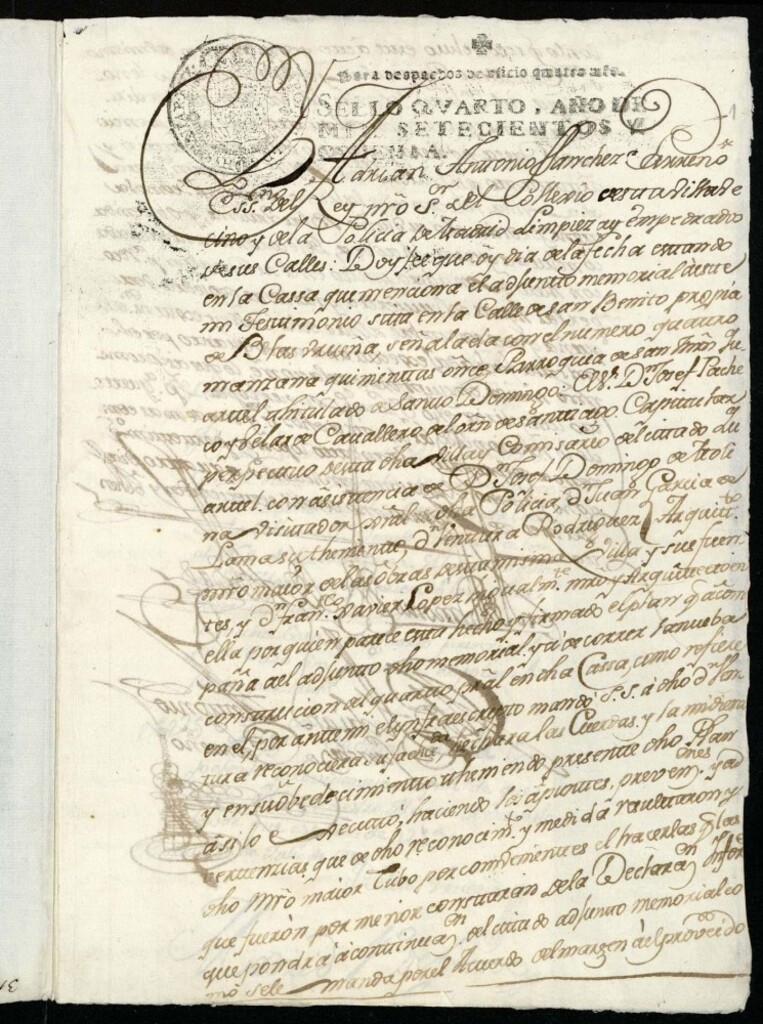 Para despachos de oficio quatro mrs.
SELLO QVARTO, AÑO DE
MIL SETECIENTOS Y
OCHENTA.
Adrian Antonio Sanchez Terreño
Essno. Del Rey nro Sr. del Collexio de esta Villa de
cino y de la Policia de Madrid Limpieza y empedrados
de sus Calles: Doy fee que oy dia de la fecha estando
en la Cassa que menciona el adjunto memorial de este
mi Testimonio sita en la Calle de San Benito propia
de Blas señalada con el numero quatro
manzana quinientas onze, Parroquia de San Mrn. Qu
artel titulado de Santo Domingo; el Sr. Dn. Josef Pache
co y Velarde Cavallero del orn de Santiago, Capitular
perpectuo de esta dha Villa y Comisario del citado Qu
artel, con asistencia de Dn. Josef Domingo de Moli
na Visitador de dha Policia, Dn. Juan Garcia de
Lamas su theniente, Dn. Ventura Rodriguez Arquitto.
mro maior de las obras de esta misma Villa y sus fuen
tes, y Dn. Franco. Xavier Lopez igualmte. mro y Arquitecto en
ella por quien parece esta hecho y firmado el plan q acom
paña al adjunto dho memorial, y a de correr la nueba
construcion al quarto pral en dha Cassa, como refiere
en el, por ante mi el ynfraescripto mandó S.S. á dho Dn. Ven
tura reconociera su fachada, hechara las Cuerdas, y la midiera
y en su obedecimiento theniendo presente dho Plan
asi lo executó; haciendo los apuntes, prevenes. y ad
vertencias que de dho reconocimto. y medida resultaron, y
dho Mro maior tubo por combenientes el hacerlas, q las
que fueron por menor constaran de la Declaran Ynfor
que pondrá á continuan. del citado adjunto memorial co
mo se le manda por el Acuerdo al margen á el proveido